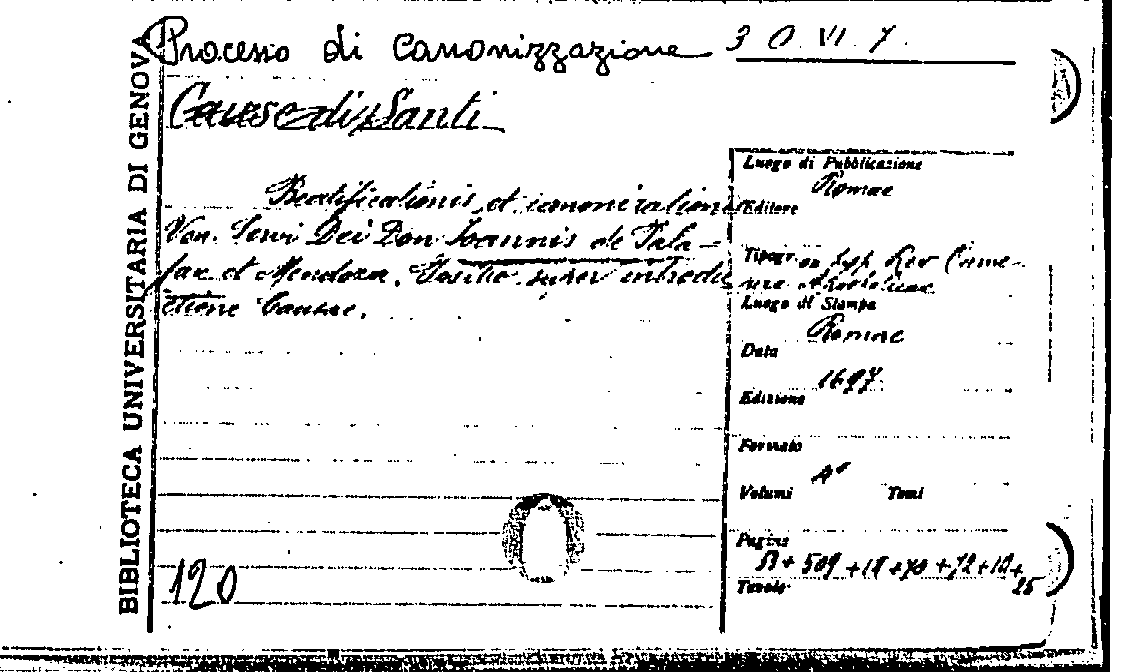 BIBLIOTECA UNIVERSITARIA DI GENOVA
Processo di canonizzazione 3 O. VI. 7.
Cause di Santi
Beatificationis et canonizationis
Ven. Servi Dei Don Joannis de Pala-
fax et Mendoza. Positio super introdu
ctione Causae.
120
Luogo di Pubblicazione
Romae
Editore
Tipogr. ex typ. Rev. Came-
rae Apostolicae
Luogo di Stampa
Romae
Data
1697
Edizione
Formato
4°
Volumi Tomi
Pagine
51+509+18+70+72+12+
25
Tavole